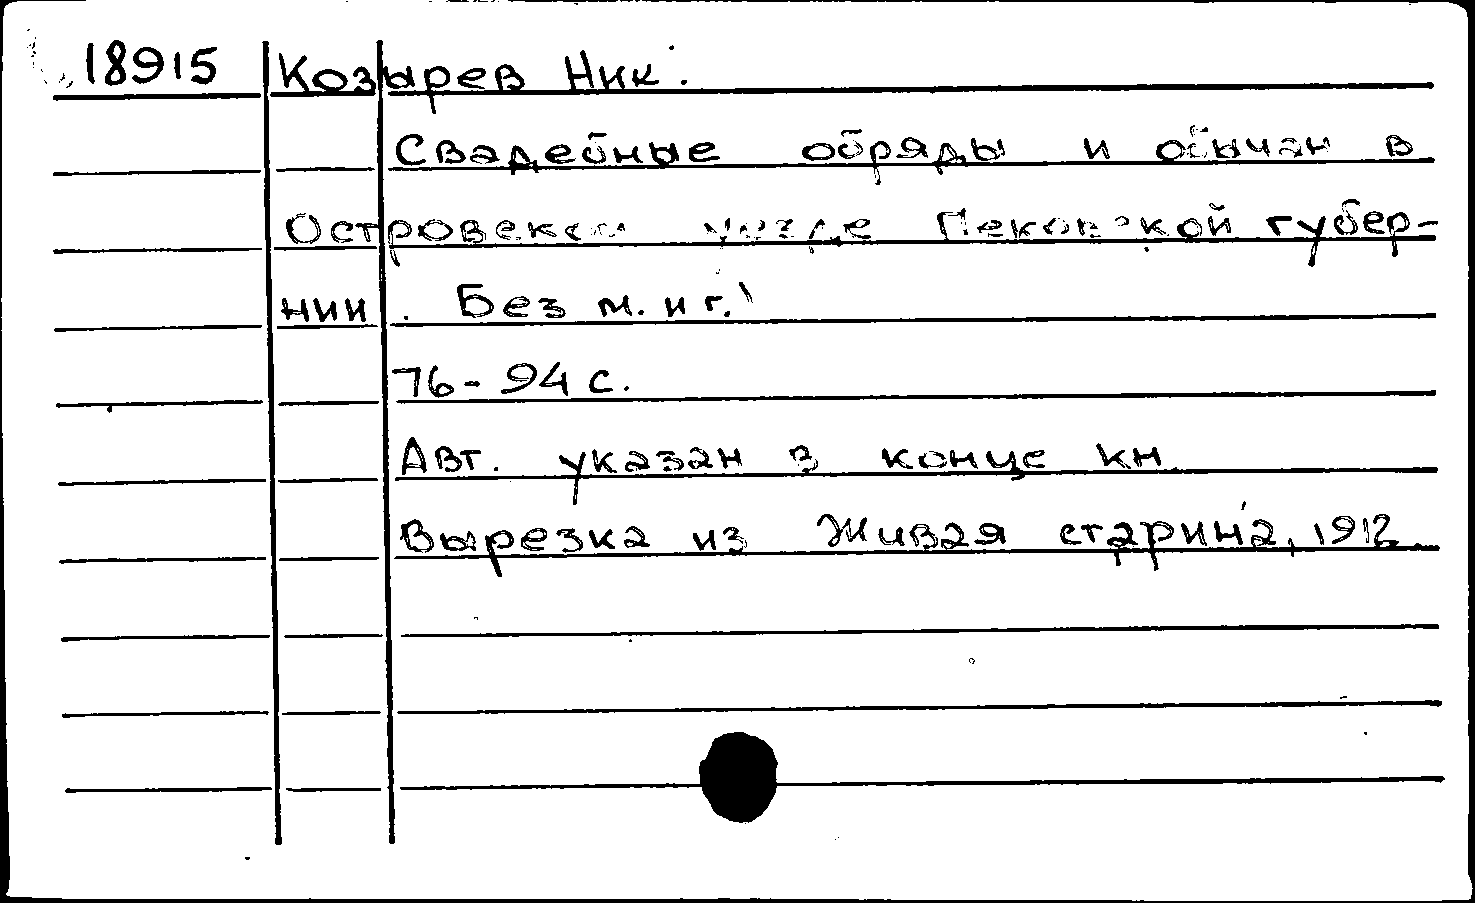 18915 Козырев Ник.
Свадебные обряды и обычаи в
Островском уезде Псковской губер-
нии. Без м. и г.
76-94 с.
Авт. указан в конце кн.
Вырезка из Живая старина, 1912.